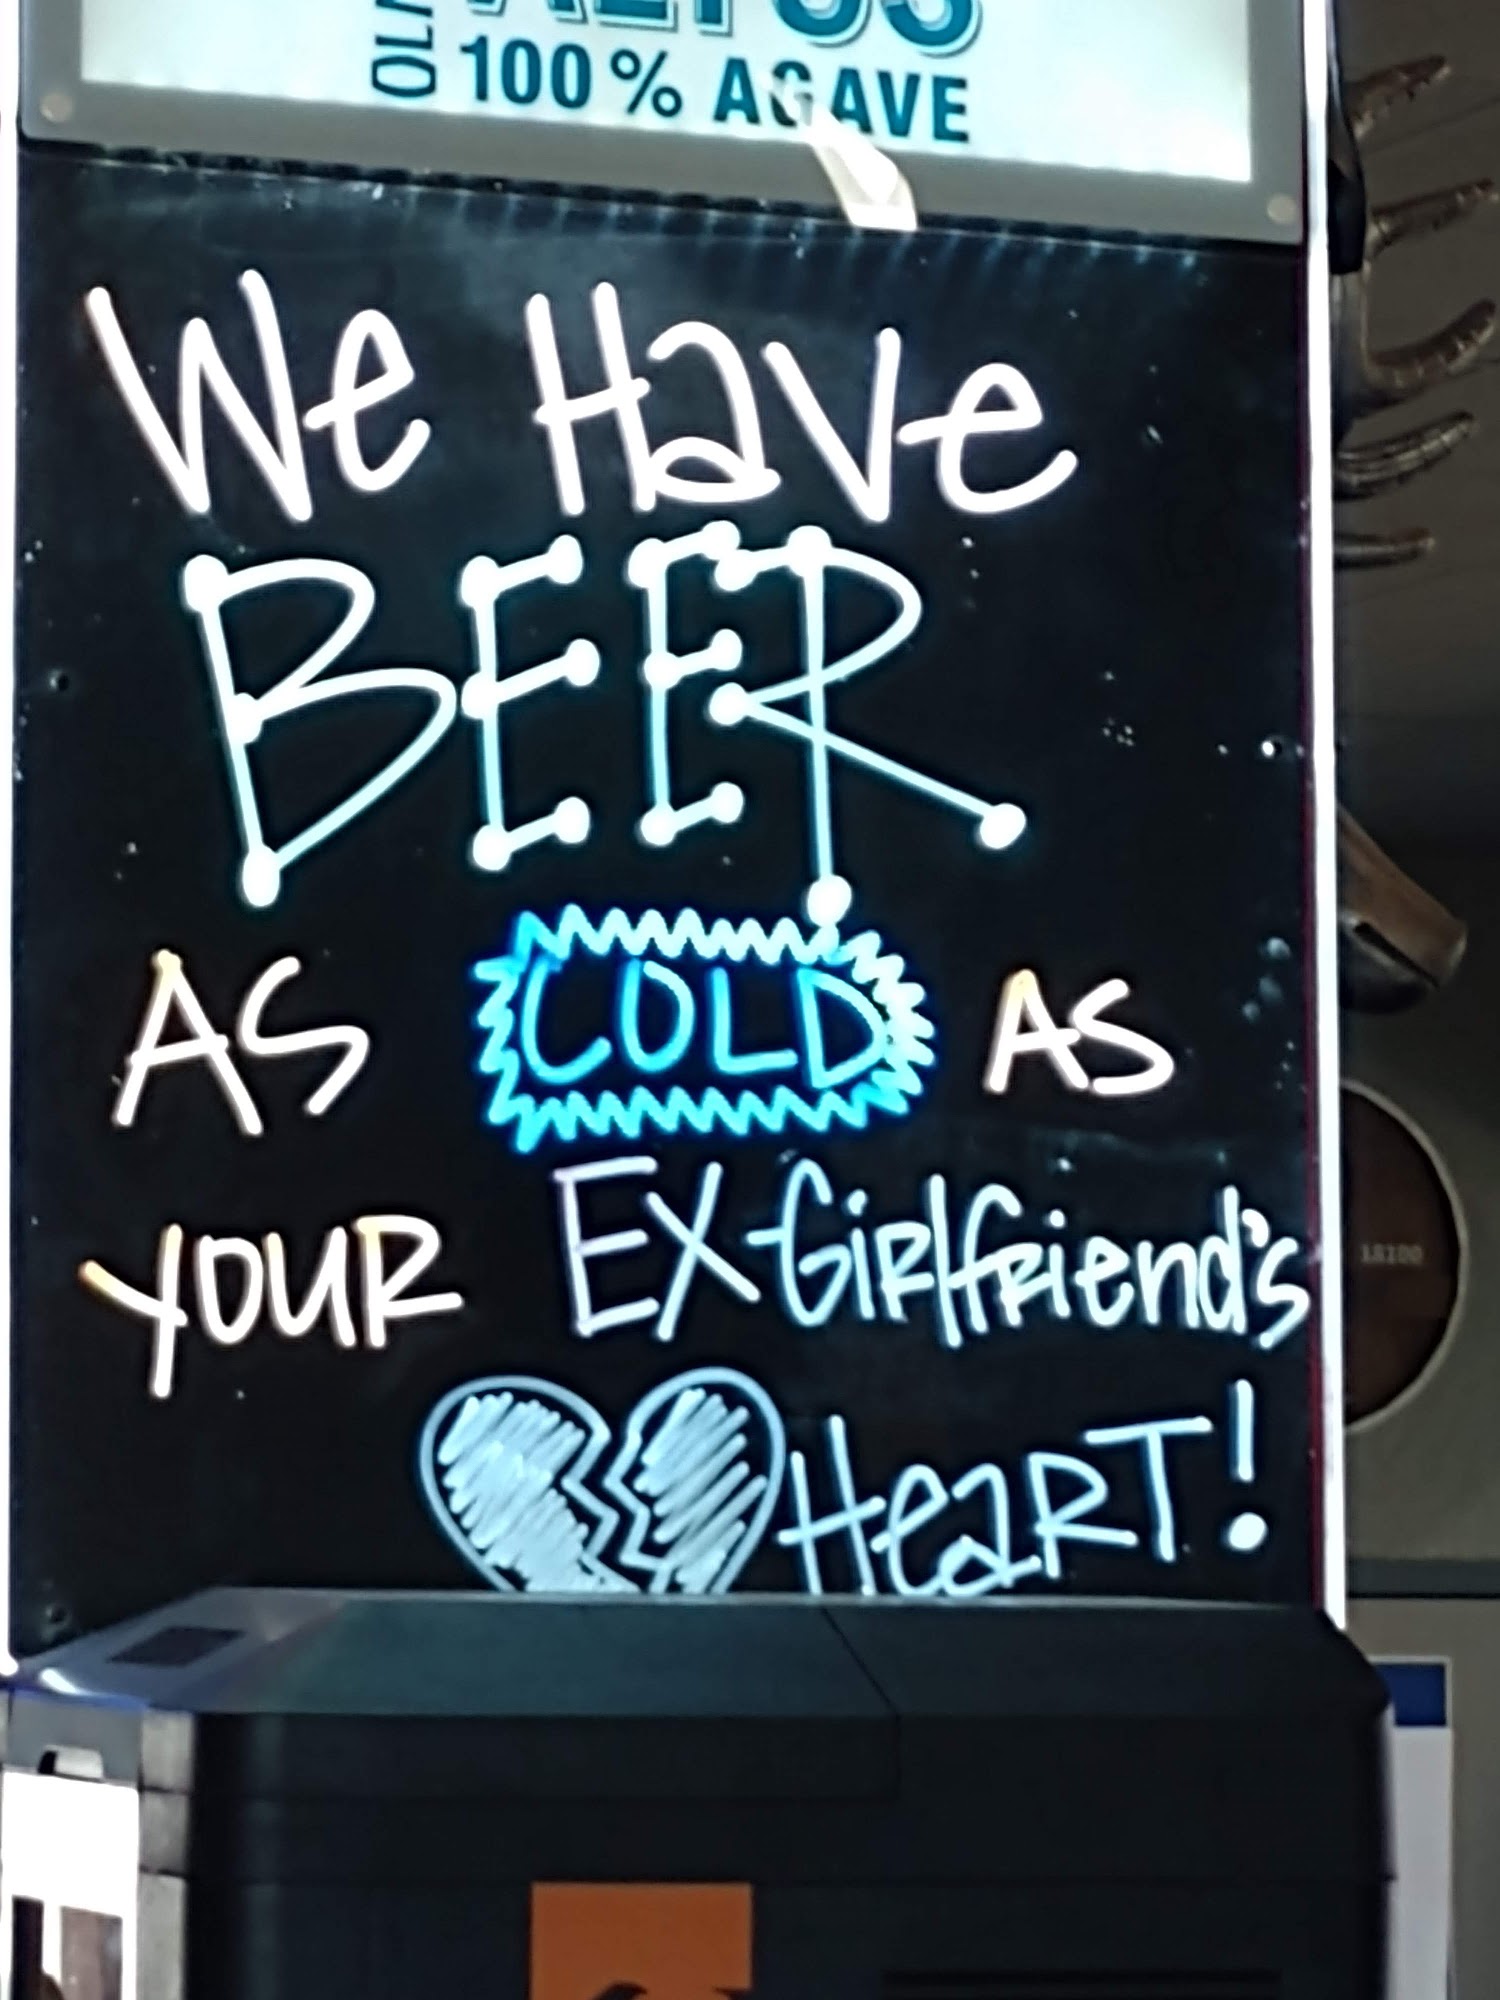 100% AGAVE
We Have
BEER
AS COLD AS
YOUR EX-GiRlfRiend's
HeaRT!